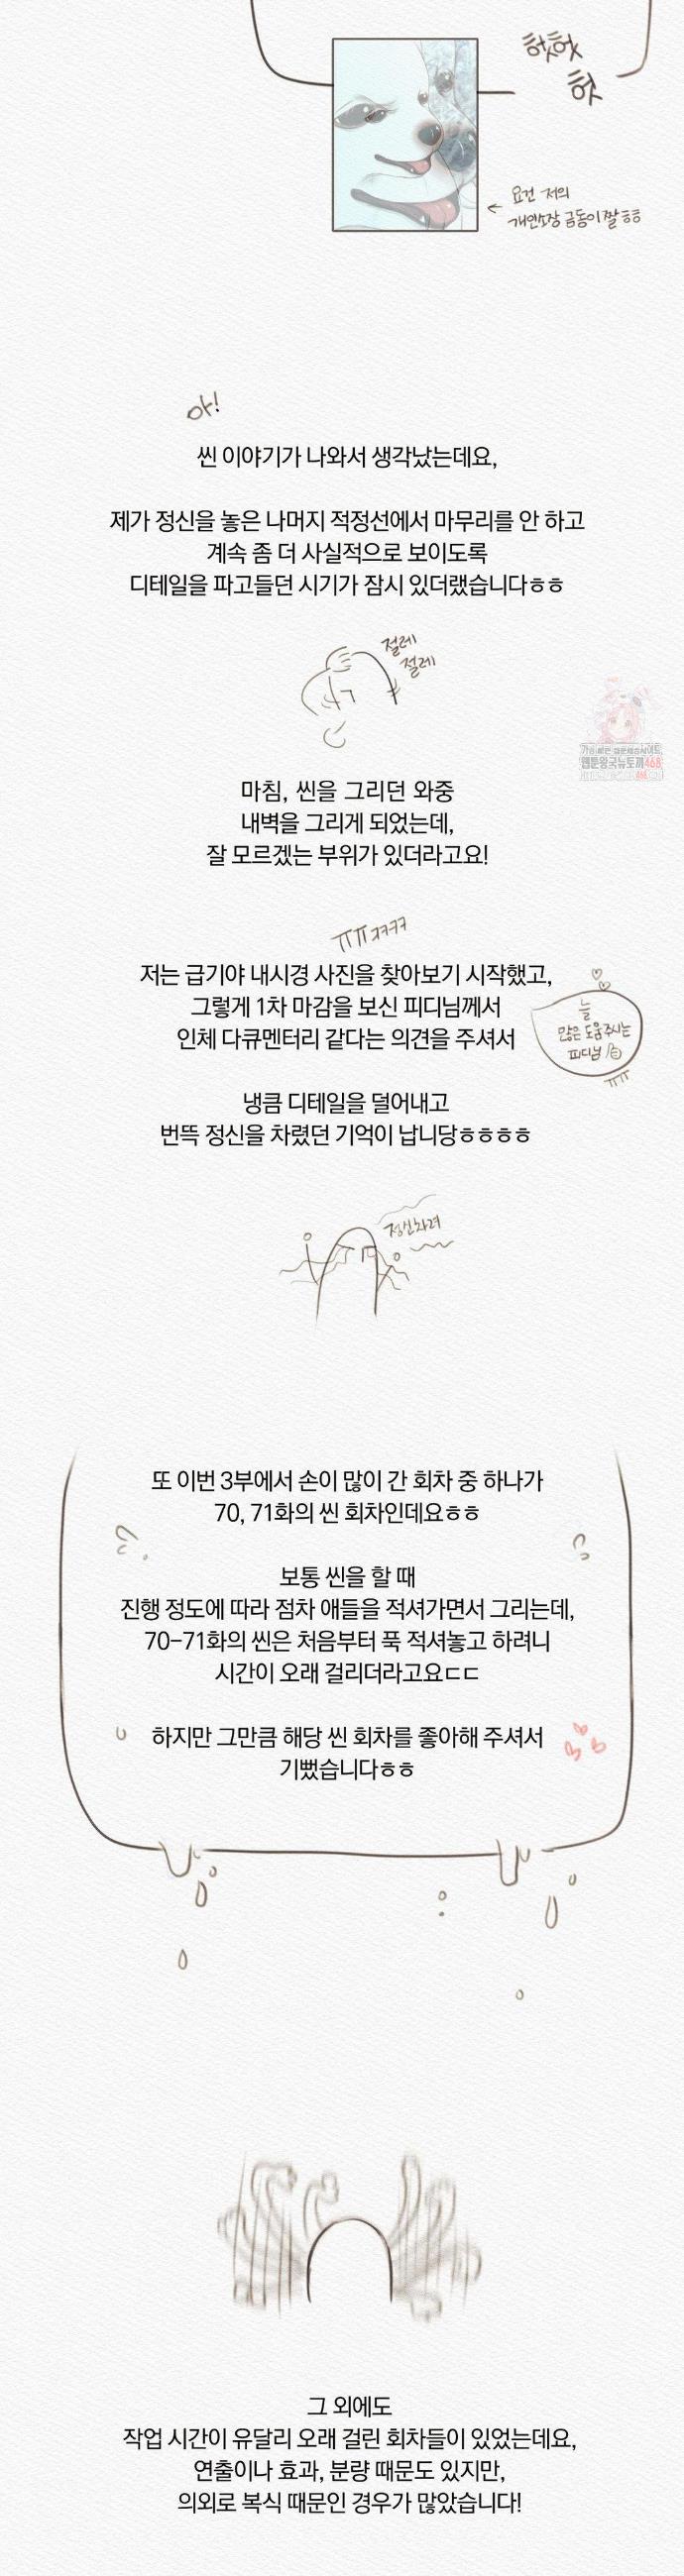 헛헛
헛
요건 저의
개인소장 금동이짤ㅎㅎ
아!
씬 이야기가 나와서 생각났는데요,
제가 정신을 놓은 나머지 적정선에서 마무리를 안 하고
계속 좀 더 사실적으로 보이도록
디테일을 파고들던 시기가 잠시 있더랬습니다ㅎㅎ
절레
절레
마침, 씬을 그리던 와중
내벽을 그리게 되었는데,
잘 모르겠는 부위가 있더라고요!
ㅠㅠㅋㅋㅋ
저는 급기야 내시경 사진을 찾아보기 시작했고,
그렇게 1차 마감을 보신 피디님께서
인체 다큐멘터리 같다는 의견을 주셔서
늘
많은 도움주시는
피디님
ㅠㅠ
냉큼 디테일을 덜어내고
번뜩 정신을 차렸던 기억이 납니당ㅎㅎㅎㅎ
정신차려
또 이번 3부에서 손이 많이 간 회차 중 하나가
70, 71화의 씬 회차인데요ㅎㅎ
보통 씬을 할 때
진행 정도에 따라 점차 애들을 적셔가면서 그리는데,
70-71화의 씬은 처음부터 푹 적셔놓고 하려니
시간이 오래 걸리더라고요ㄷㄷ
하지만 그만큼 해당 씬 회차를 좋아해 주셔서
기뻤습니다ㅎㅎ
그 외에도
작업 시간이 유달리 오래 걸린 회차들이 있었는데요,
연출이나 효과, 분량 때문도 있지만,
의외로 복식 때문인 경우가 많았습니다!
웹툰왕국뉴토끼468